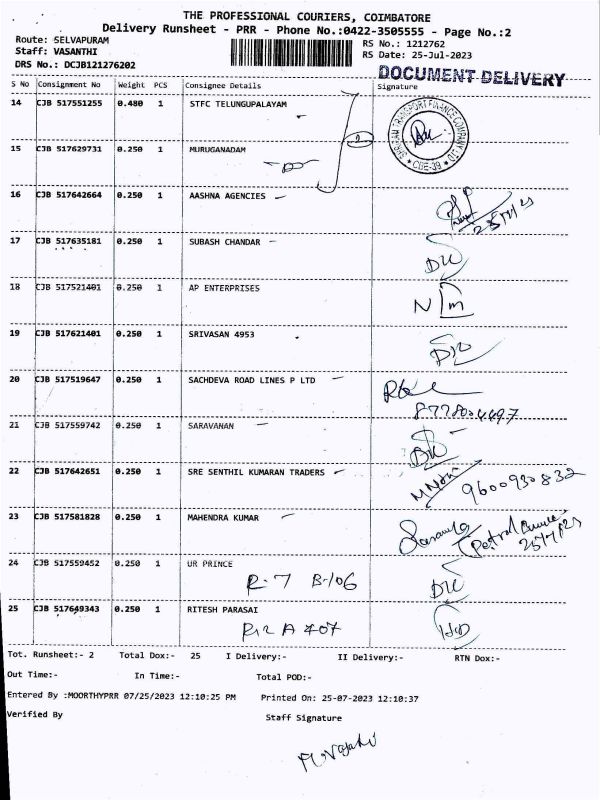 THE PROFESSIONAL COURIERS, COIMBATORE
Delivery Runsheet - PRR - Phone No.:0422-3505555 - Page No.:2
Route: SELVAPURAM
Staff: VASANTHI
DRS No.: DCJB121276202
RS No.: 1212762
RS Date: 25-Jul-2023
DOCUMENT DELIVERY
S No Consignment No Weight PCS Consignee Details Signature
14 CJB 517551255 0.480 1 STFC TELUNGUPALAYAM
SHRIRAM TRANSPORT FINANCE COMPANY LTD
CBE-39
15 CJB 517629731 0.250 1 MURUGANADAM
16 CJB 517642664 0.250 1 AASHNA AGENCIES
17 CJB 517635181 0.250 1 SUBASH CHANDAR
18 CJB 517521401 0.250 1 AP ENTERPRISES
19 CJB 517621401 0.250 1 SRIVASAN 4953
20 CJB 517519647 0.250 1 SACHDEVA ROAD LINES P LTD
21 CJB 517559742 0.250 1 SARAVANAN
22 CJB 517642651 0.250 1 SRE SENTHIL KUMARAN TRADERS 9600930832
23 CJB 517581828 0.250 1 MAHENDRA KUMAR
25/7/23
24 CJB 517559452 0.250 1 UR PRINCE
R-7 B-106
25 CJB 517649343 0.250 1 RITESH PARASAI
R12 A 707
Tot. Runsheet:- 2 Total Dox:- 25 I Delivery:- II Delivery:- RTN Dox:-
Out Time:- In Time:- Total POD:-
Entered By :MOORTHYPRR 07/25/2023 12:10:25 PM Printed On: 25-07-2023 12:10:37
Verified By Staff Signature